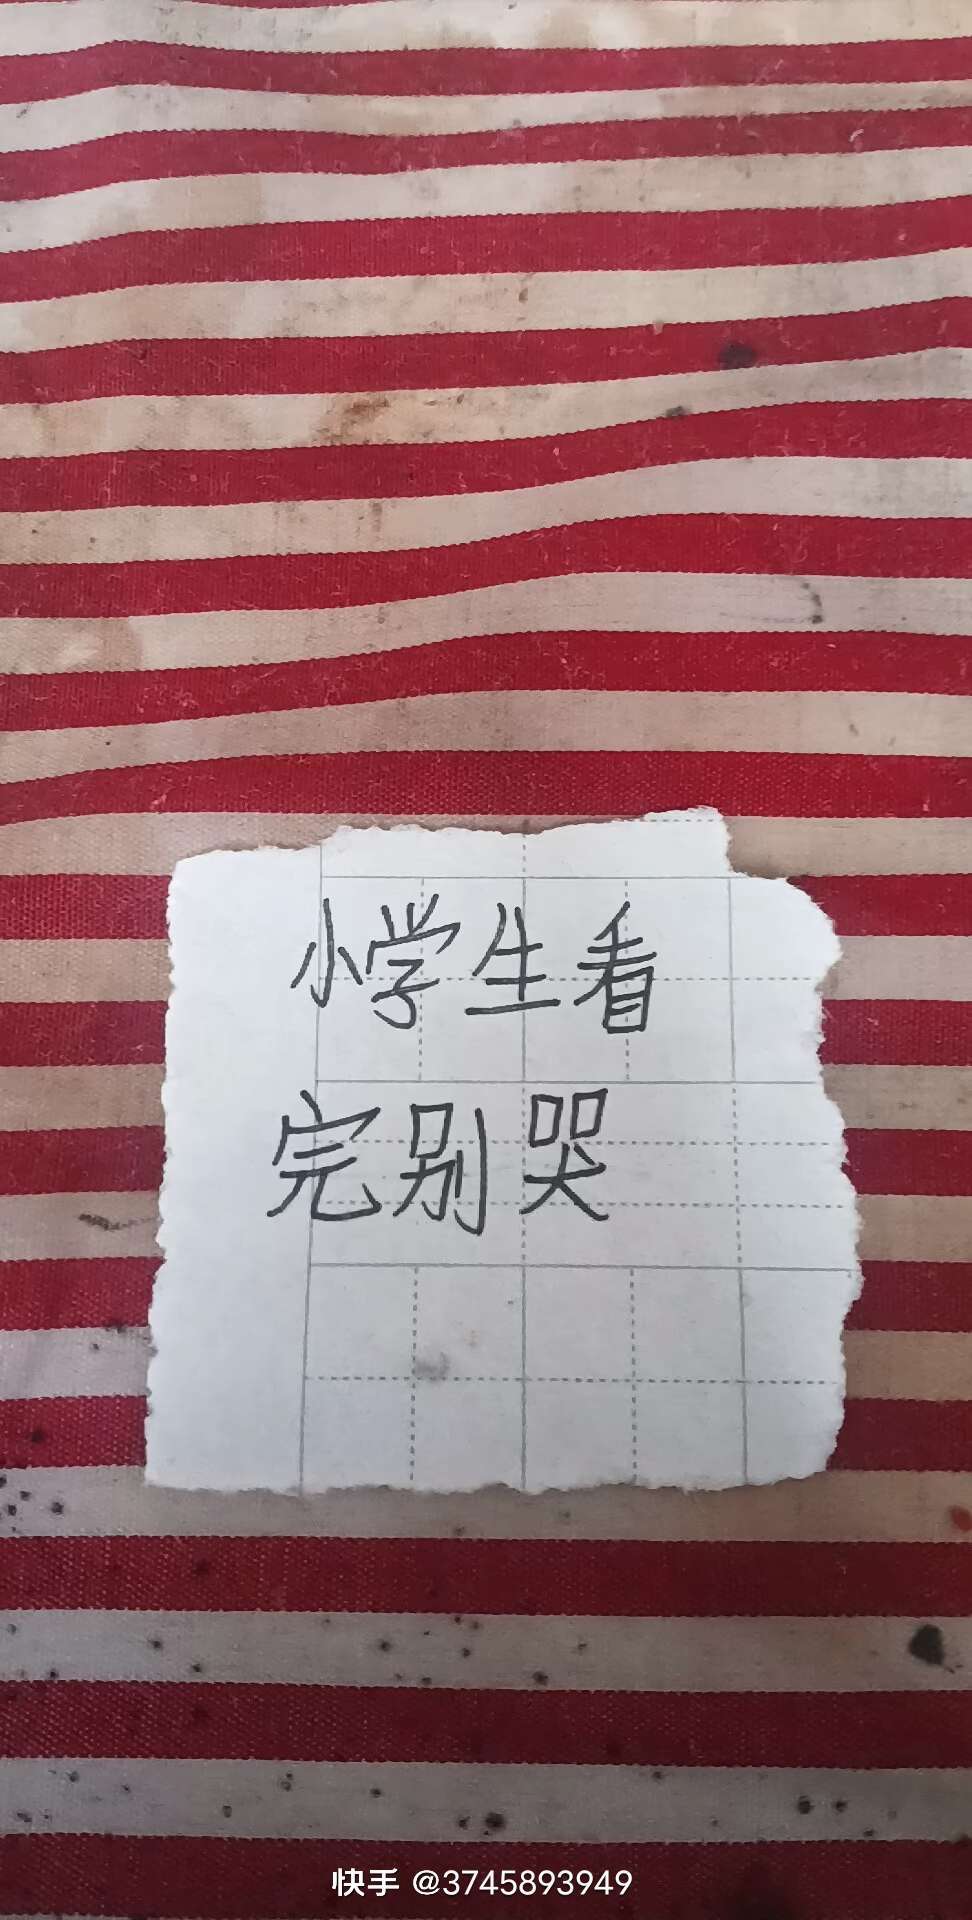 小学生看
完别哭
快手 @3745893949